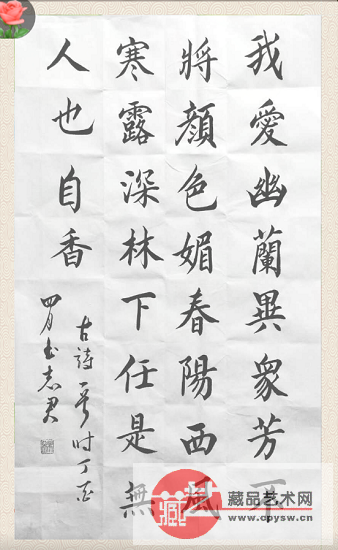 我愛幽蘭異衆芳不
將顏色媚春陽西風
寒露深林下任是無
人也自香
古詩一首時丁酉
四月
志君
藏品艺术网
www.cpysw.cn